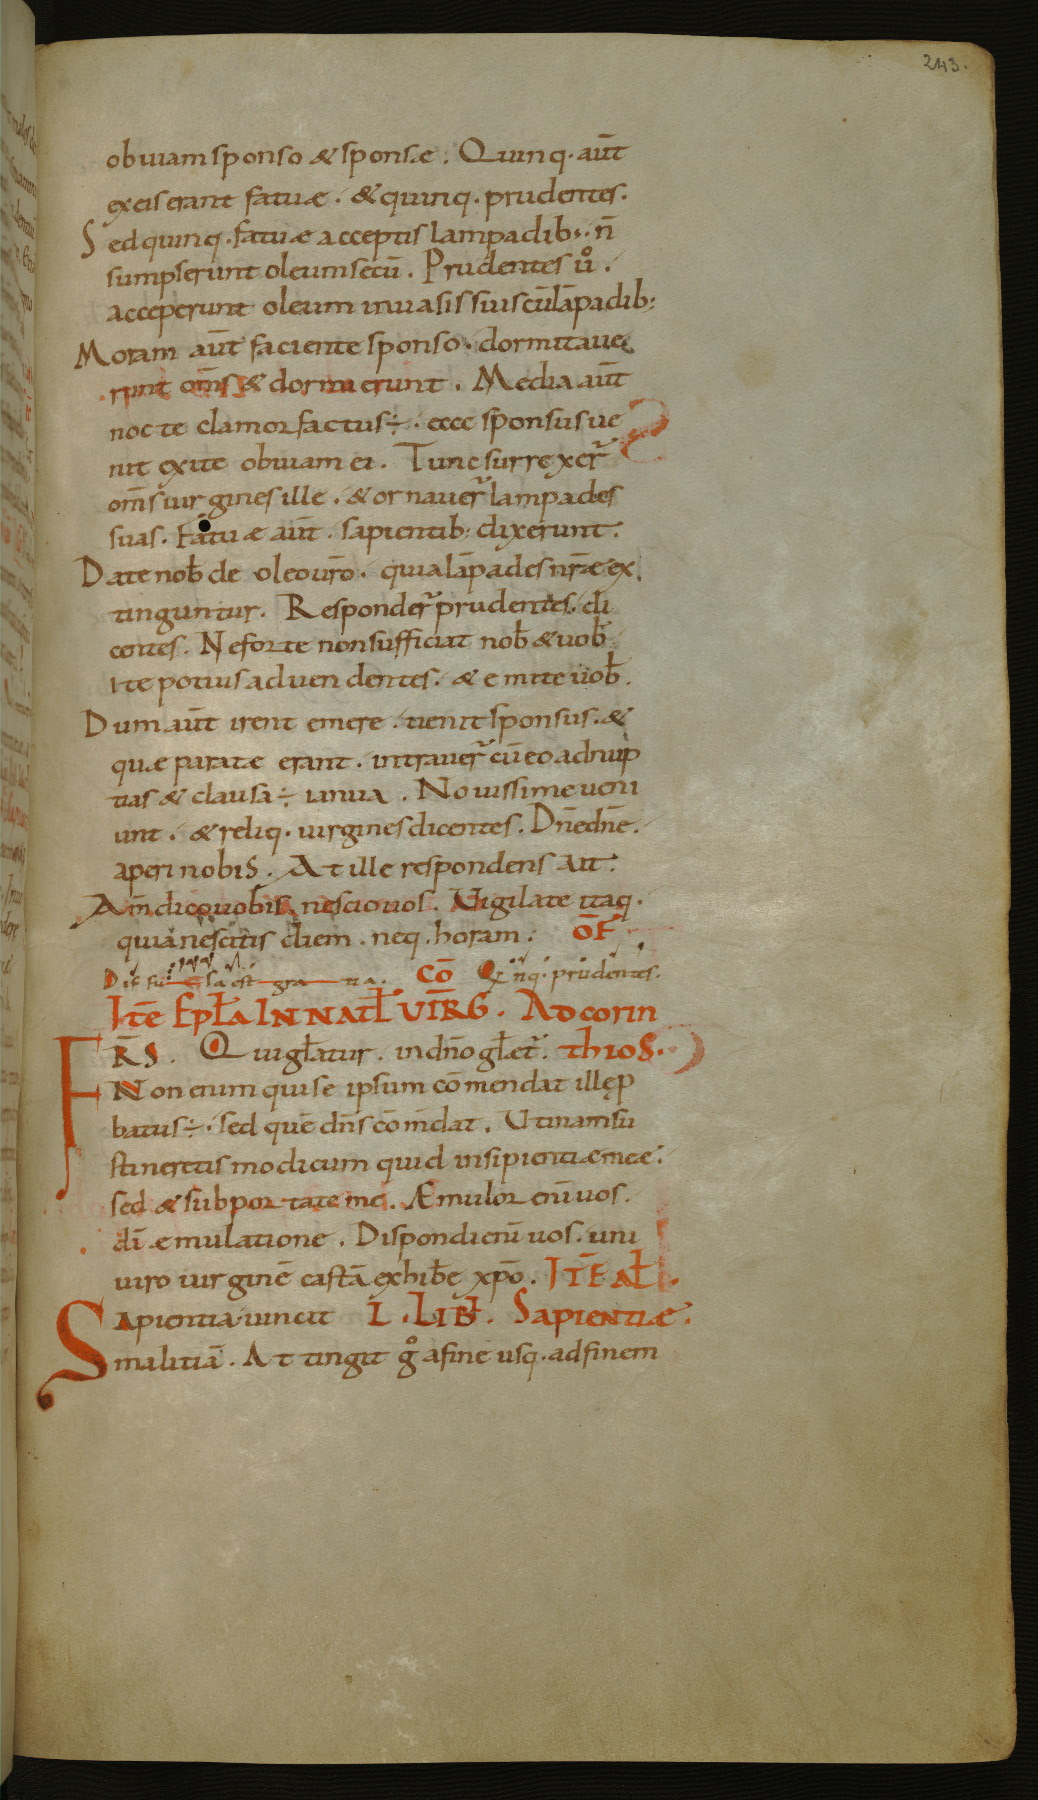 243.
obuiam sponso & sponsae. Quinq. aūt
ex eis erant fatuae. & quinq. prudentes.
Sed quinq. fatuae acceptis lampadib; n̄
sumpserunt oleum secū. Prudentes ůo.
acceperunt oleum in uasis suis cū lāpadib;
Moram aūt faciente sponso. dormitaue
runt om̄s & dormierunt. Media aūt
nocte clamor factus ÷. ecce sponsus ue
nit exite obuiam ei. Tunc surrexer̄
om̄s uirgines ille. & ornauer̄ lampades
suas. Fatuae aūt. sapientib; dixerunt.
Date nob̄ de oleo ur̄o. quia lāpades nr̄ae ex
tinguntur. Responder̄ prudentes. di
centes. Ne forte non sufficiat nob̄ & uob̄
ite potius ad uendentes. & emite uob̄.
Dum aūt irent emere. uenit sponsus. &
quae paratae erant. intrauer̄ cū eo ad nup
tias & clausa ÷ ianua. Nouissime ueni
unt. & reliq. uirgines dicentes. Dn̄e dn̄e.
aperi nobis. At ille respondens ait.
Am̄ dico uobis. nescio uos. Uigilate itaq.
quia nescitis diem. neq. horam. OF̄
Dif fu sa est gra na. CŌ Qinq. prudentes.
ITĒ EPL̄A IN NATL̄ VIRḠ. AD CORIN
FRS̄. Qui gl̄atur. in dn̄o gl̄et̄. THIOS.
Non enim qui se ipsum cōmendat ille p
batus ÷. sed quē dn̄s cōm̄dat. Utinam su
stineretis modicum quid insipientiae meae.
sed & subportate me. Aemulor enī uos.
dī aemulatione. Dispondi enī uos. uni
uiro uirginē castā exhib̄e xp̄o. ITĒ AL̄.
Sapientia uincit L. LIB̄. SAPIENTIAE.
malitiā. Attingit g̊ a fine usq. ad finem